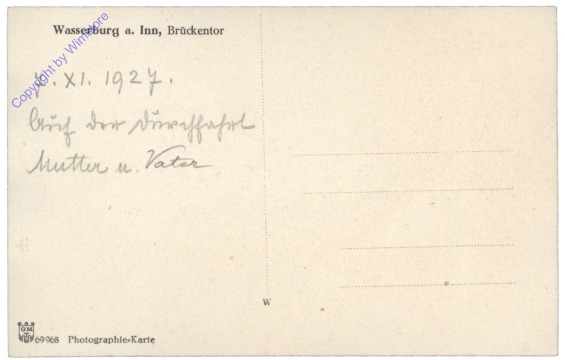 Wasserburg a. Inn, Brückentor
Copyright by Winstore
7. XI. 1927.
Auf der Durchfahrt
Mutter u. Vater
W
69968 Photographie-Karte